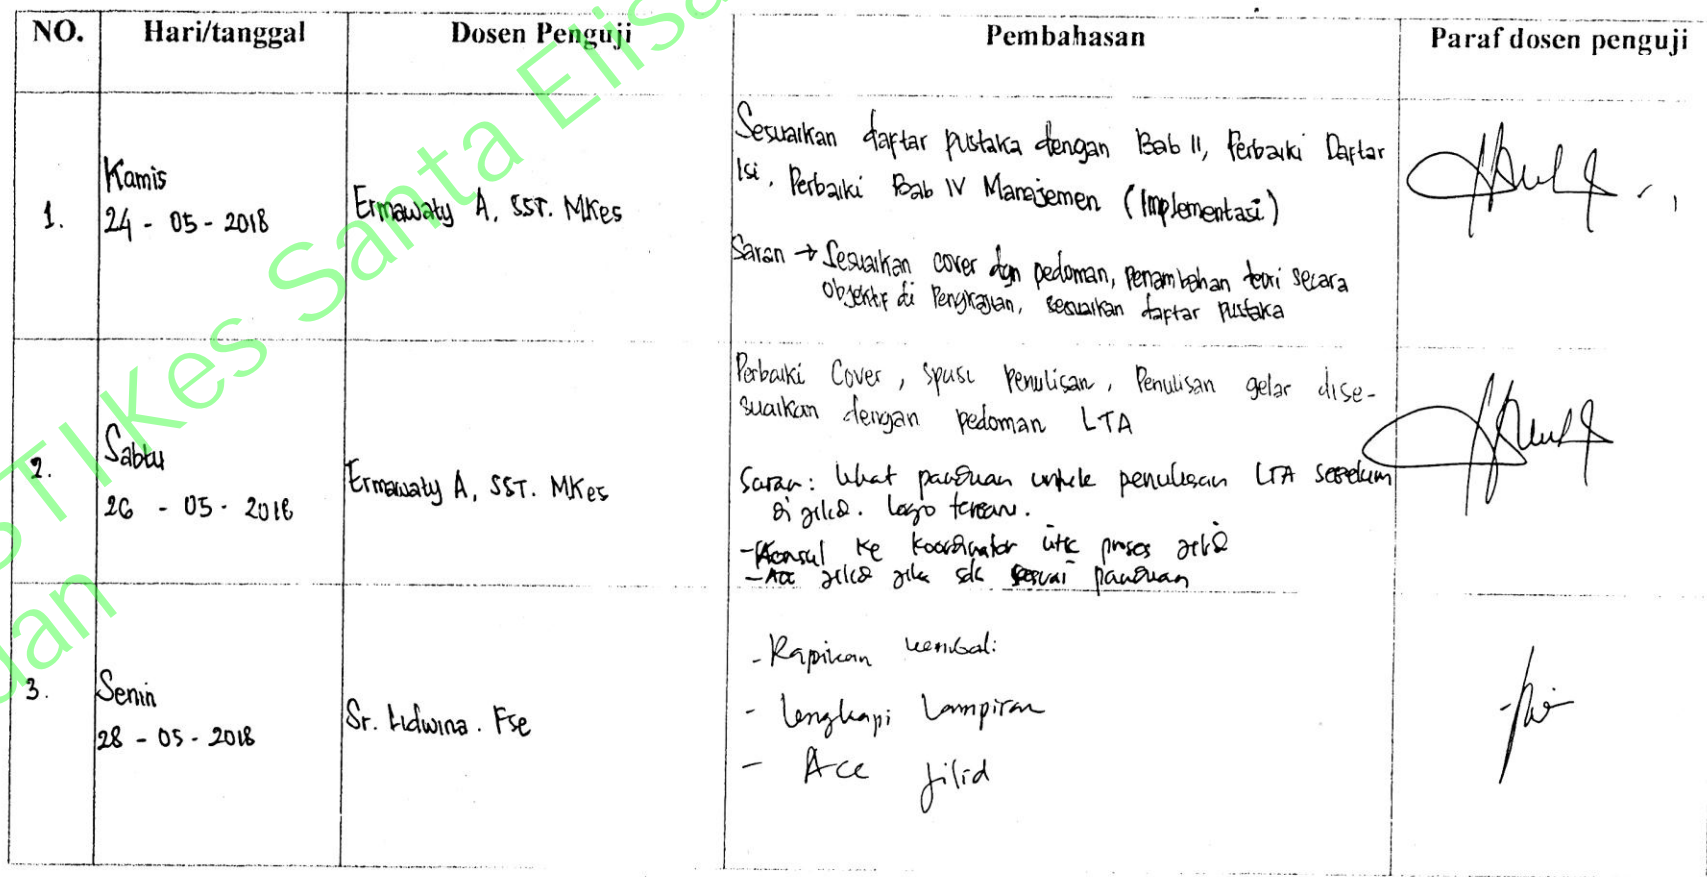 NO. Hari/tanggal Dosen Penguji Pembahasan Paraf dosen penguji
1.
Kamis
24 - 05 - 2018
Ermawaty A, SST. MKes
Sesuaikan daftar pustaka dengan Bab II, Perbaiki Daftar
Isi, Perbaiki Bab IV Manajemen (Implementasi)
Saran → Sesuaikan cover dgn pedoman, penambahan teori secara
objektif di Pengkajian, sesuaikan daftar pustaka
2.
Sabtu
26 - 05 - 2018
Ermawaty A, SST. MKes
Perbaiki Cover, spasi Penulisan, Penulisan gelar dise-
suaikan dengan pedoman LTA
Saran: lihat panduan untuk penulisan LTA sebelum
di jilid. logo
- Konsul ke koordinator utk proses jilid
- Acc jilid jika sdh sesuai panduan
3.
Senin
28 - 05 - 2018
Sr. Lidwina. Fse
- Rapikan kembali
- lengkapi Lampiran
- Acc jilid
STIKes Santa Elisa
dan